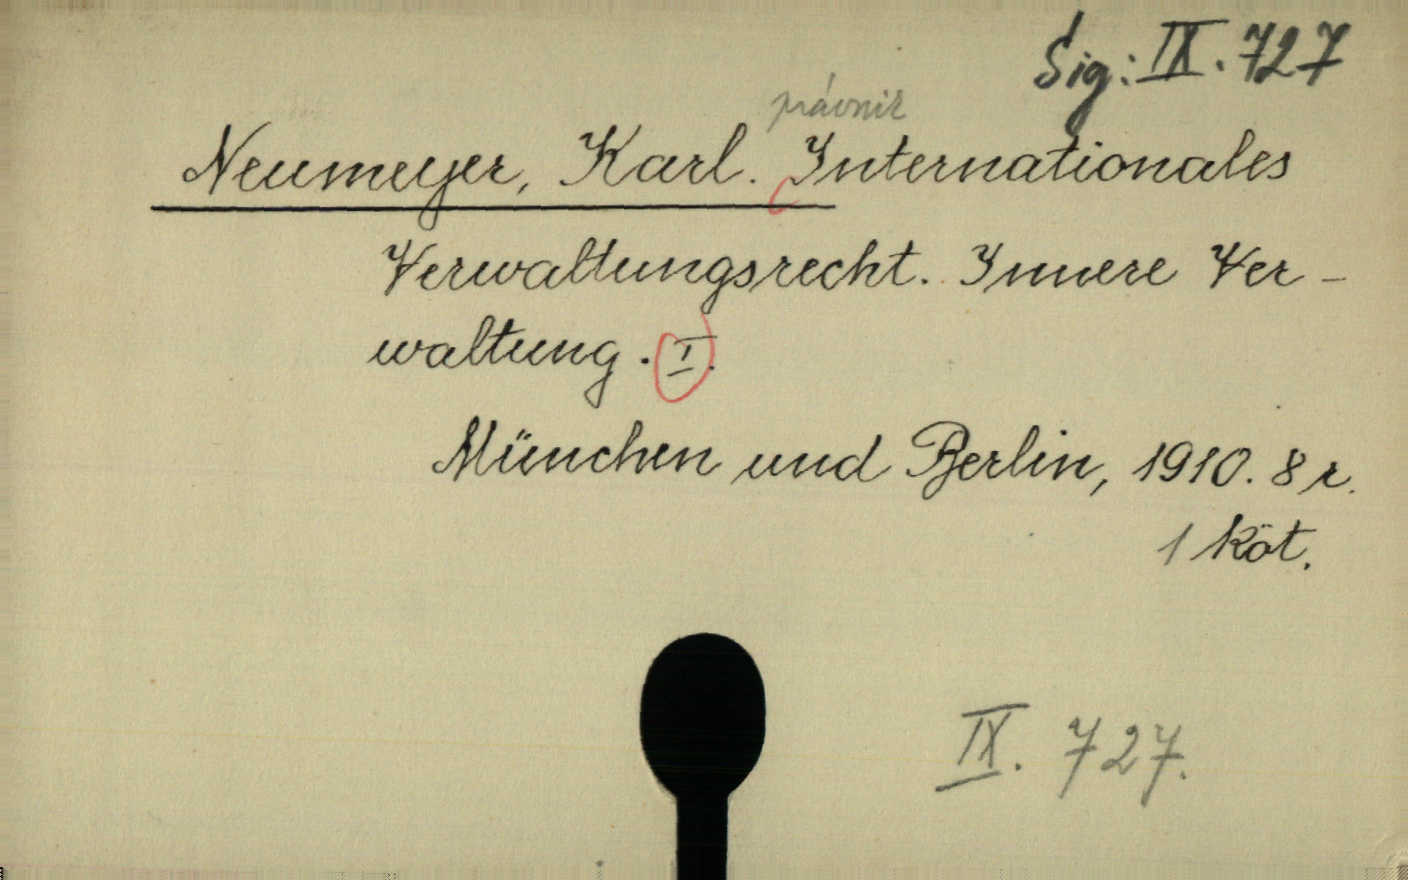 Sig: IX. 727
právnik
Neumeyer, Karl. Internationales
Verwaltungsrecht. Innere Ver-
waltung. I.
München und Berlin, 1910. 8 r.
1 Köt.
IX. 727.